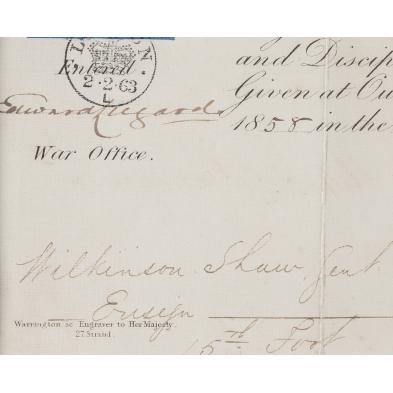 LONDON
Entered
2·2·63
L
and Discip
Given at Ou
1858 in the
War Office.
Wilkinson Shaw, Gent
Ensign
Warrington sc Engraver to Her Majesty.
27 Strand.
15th Foot